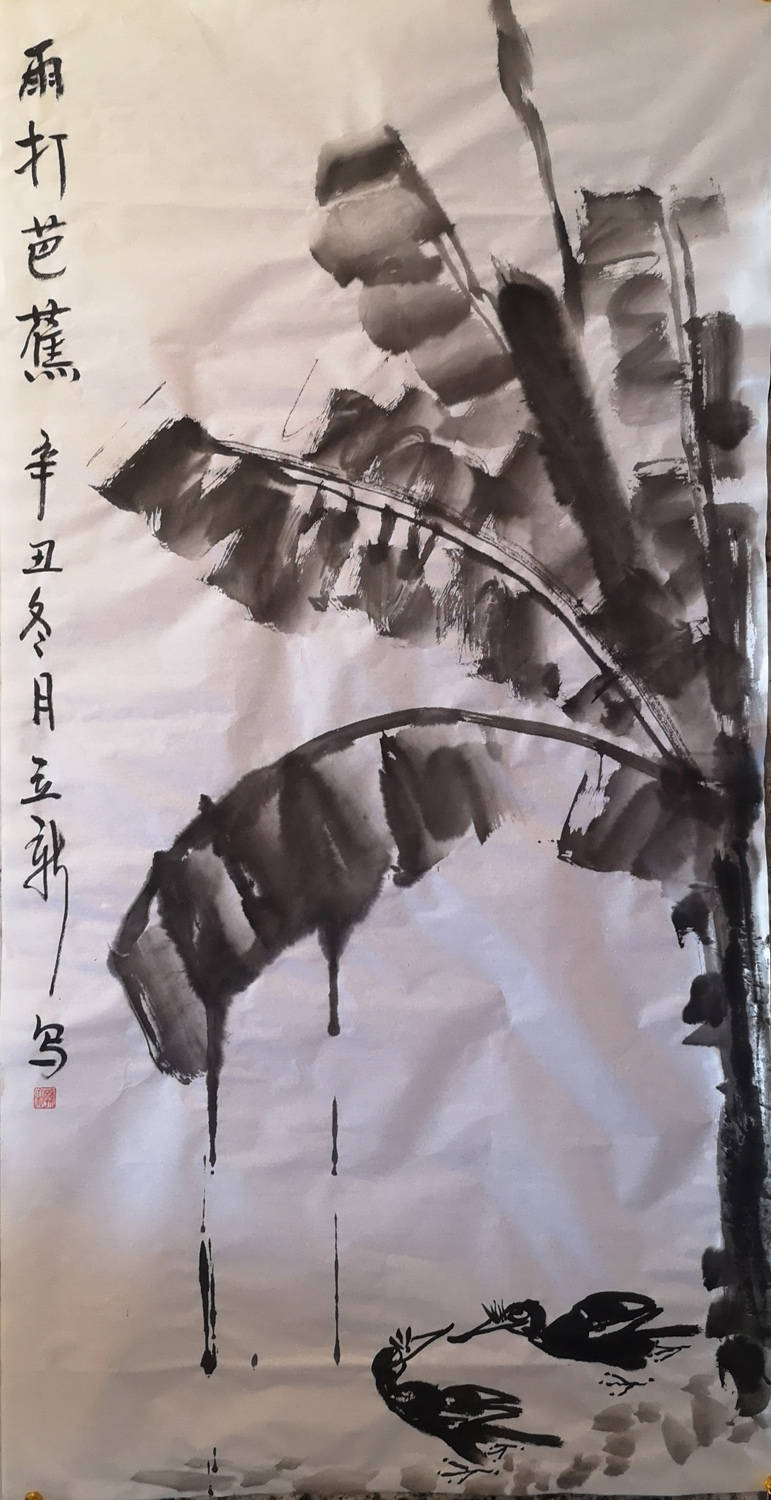 雨打芭蕉 辛丑冬月立新写